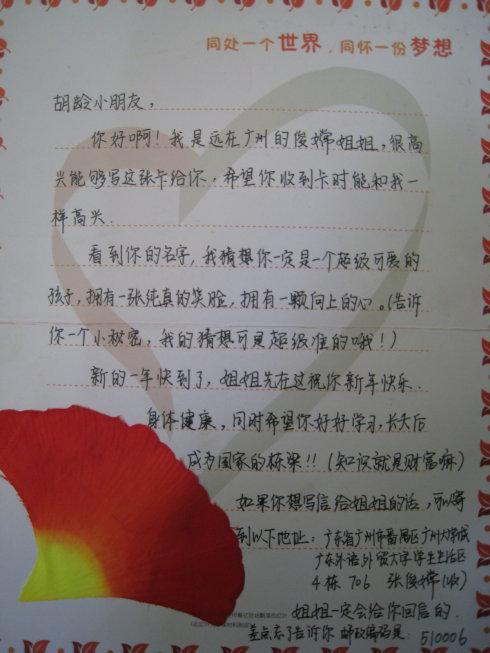 同处一个世界,同怀一份梦想
胡龄小朋友,
你好啊!我是远在广州的俊嫦姐姐,很高
兴能够写这张卡给你,希望你收到卡时能和我一
样高兴.
看到你的名字,我猜想你一定是一个超级可爱的
孩子,拥有一张纯真的笑脸,拥有一颗向上的心。(告诉
你一个小秘密,我的猜想可是超级准的哦!)
新的一年快到了,姐姐先在这祝你新年快乐.
身体健康,同时希望你好好学习,长大后
成为国家的栋梁!!(知识就是财富嘛)
如果你想写信给姐姐的话,可以寄
到以下地址:广东省广州市番禺区广州大学城
广东外语外贸大学学生生活区
4栋 706 张俊嫦(收)
姐姐一定会给你回信的.
差点忘了告诉你 邮政编码是:510006